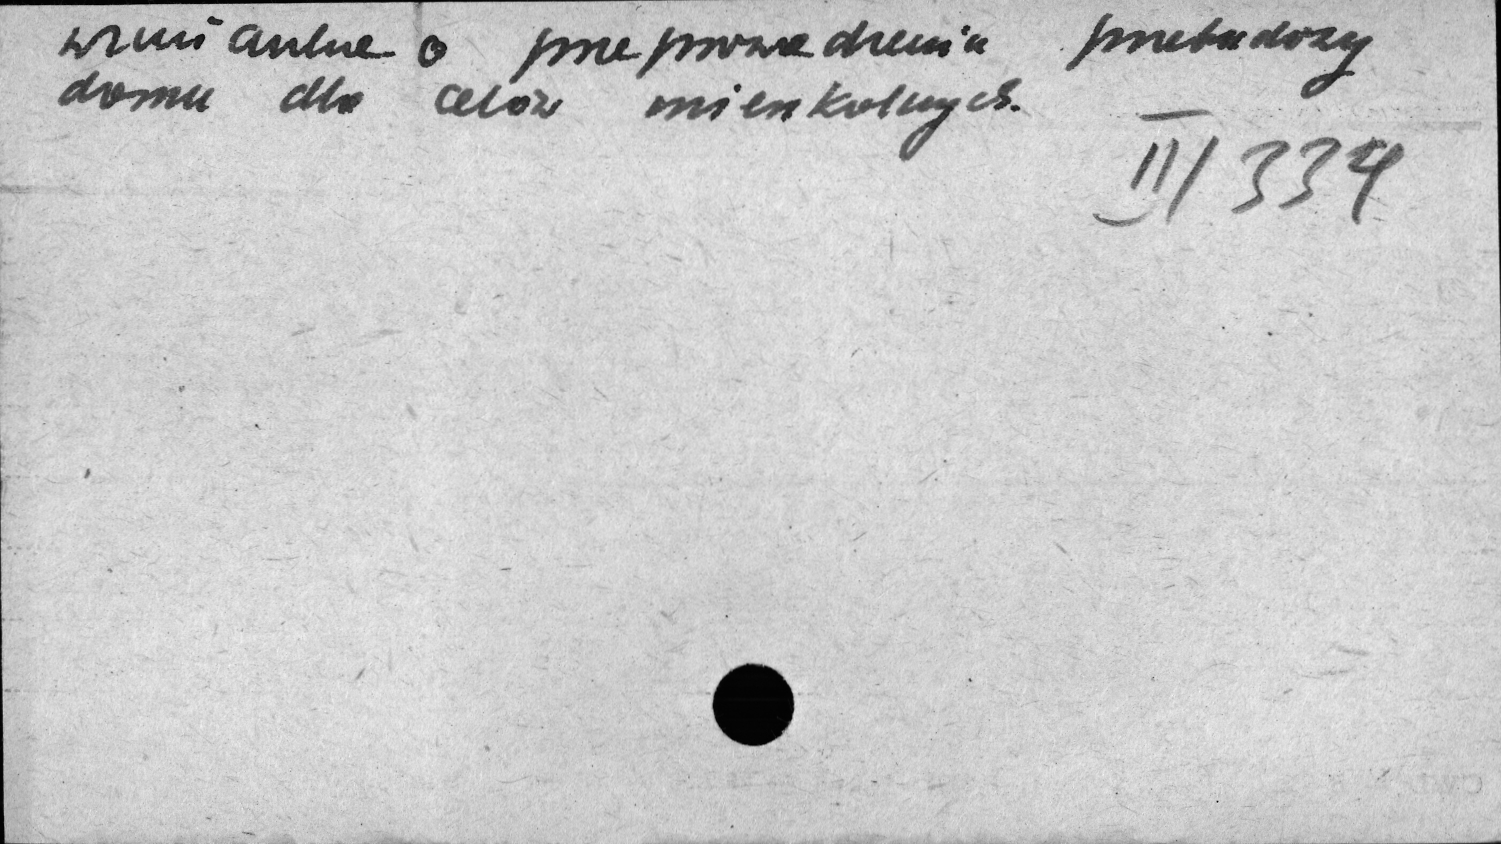 wzmiankne o przeprowadzenia przebudowy
domu dla celów mieszkalnych.
III 334